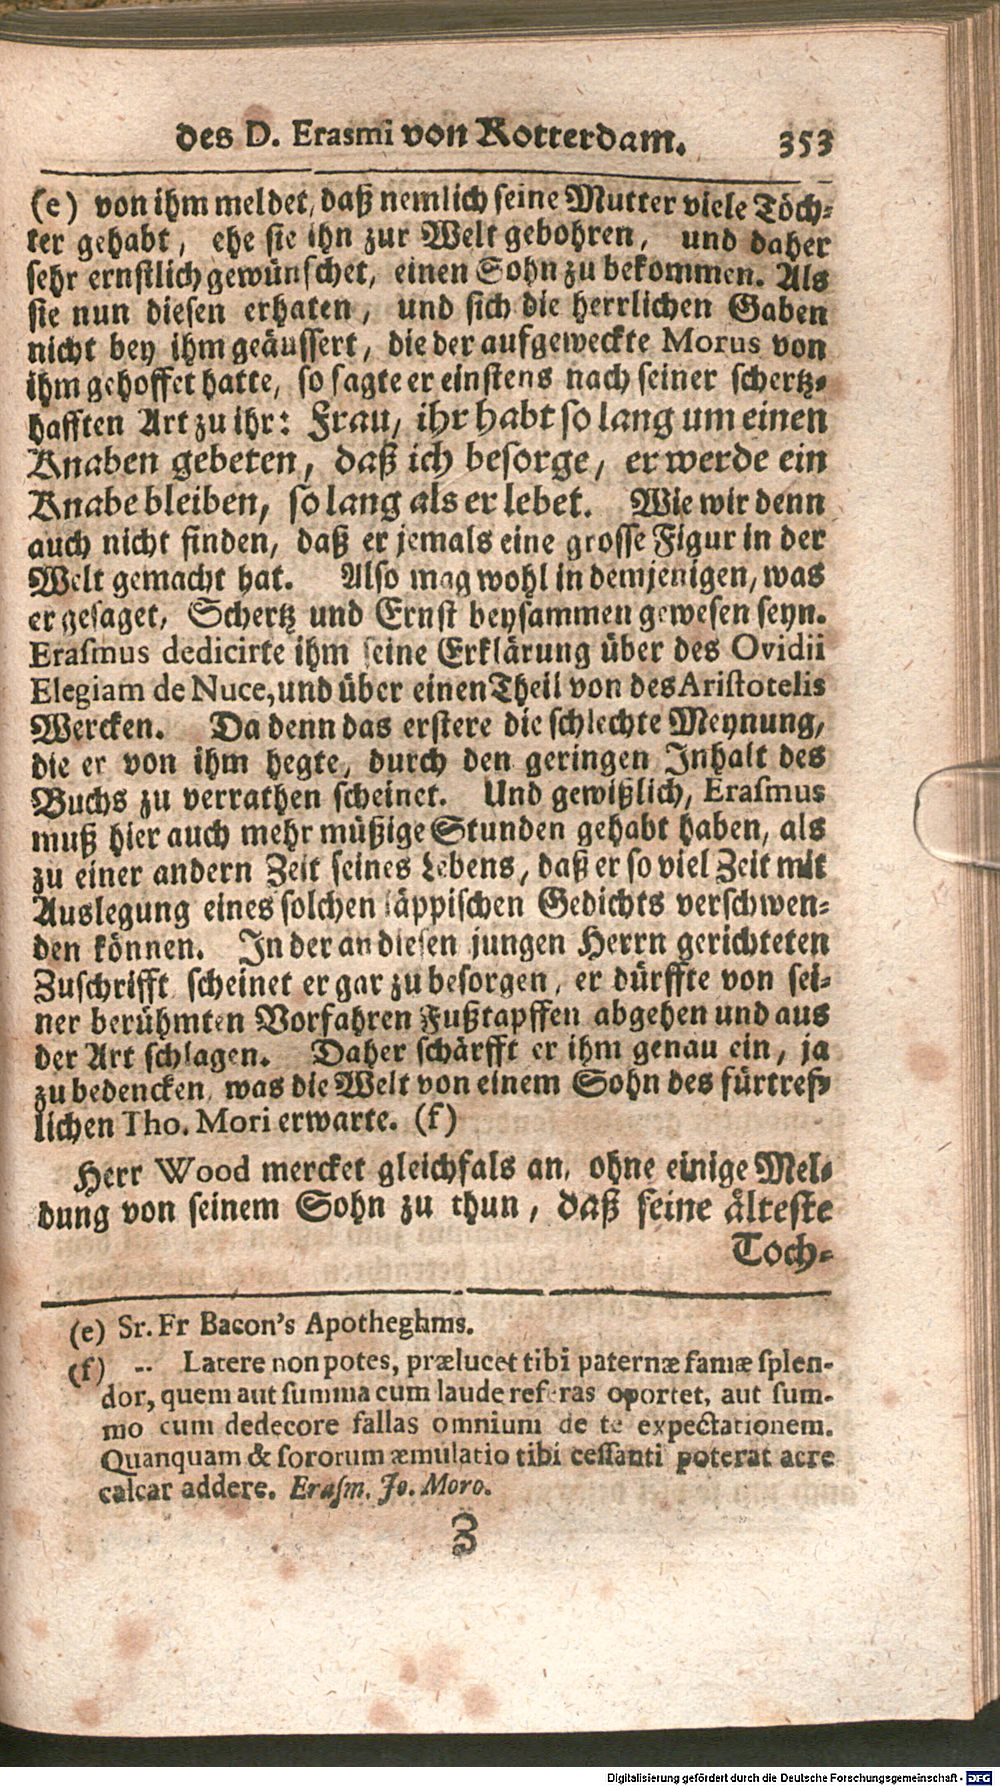 des D. Erasmi von Rotterdam. 353
(e) von ihm meldet, daß nemlich seine Mutter viele Töch-
ter gehabt, ehe sie ihn zur Welt gebohren, und daher
sehr ernstlich gewünschet, einen Sohn zu bekommen. Als
sie nun diesen erhaten, und sich die herrlichen Gaben
nicht bey ihm geäussert, die der aufgeweckte Morus von
ihm gehoffet hatte, so sagte er einstens nach seiner schertz-
hafften Art zu ihr: Frau, ihr habt so lang um einen
Knaben gebeten, daß ich besorge, er werde ein
Knabe bleiben, so lang als er lebet. Wie wir denn
auch nicht finden, daß er jemals eine grosse Figur in der
Welt gemacht hat. Also mag wohl in demjenigen, was
er gesaget, Schertz und Ernst beysammen gewesen seyn.
Erasmus dedicirte ihm seine Erklärung über des Ovidii
Elegiam de Nuce, und über einen Theil von des Aristotelis
Wercken. Da denn das erstere die schlechte Meynung,
die er von ihm hegte, durch den geringen Inhalt des
Buchs zu verrathen scheinet. Und gewißlich, Erasmus
muß hier auch mehr müßige Stunden gehabt haben, als
zu einer andern Zeit seines Lebens, daß er so viel Zeit mit
Auslegung eines solchen läppischen Gedichts verschwen-
den können. In der an diesen jungen Herrn gerichteten
Zuschrifft scheinet er gar zu besorgen, er dürffte von sei-
ner berühmten Vorfahren Fußtapffen abgehen und aus
der Art schlagen. Daher schärfft er ihm genau ein, ja
zu bedencken, was die Welt von einem Sohn des fürtref-
lichen Tho. Mori erwarte. (f)
Herr Wood mercket gleichfals an, ohne einige Mel-
dung von seinem Sohn zu thun, daß seine älteste
Toch-
(e) Sr. Fr Bacon's Apotheghms.
(f) -- Latere non potes, prælucet tibi paternæ famæ splen-
dor, quem aut summa cum laude referas oportet, aut sum-
mo cum dedecore fallas omnium de te expectationem.
Quanquam & sororum æmulatio tibi cessanti poterat acre
calcar addere. Erasm. Jo. Moro.
Z
Digitalisierung gefördert durch die Deutsche Forschungsgemeinschaft - DFG